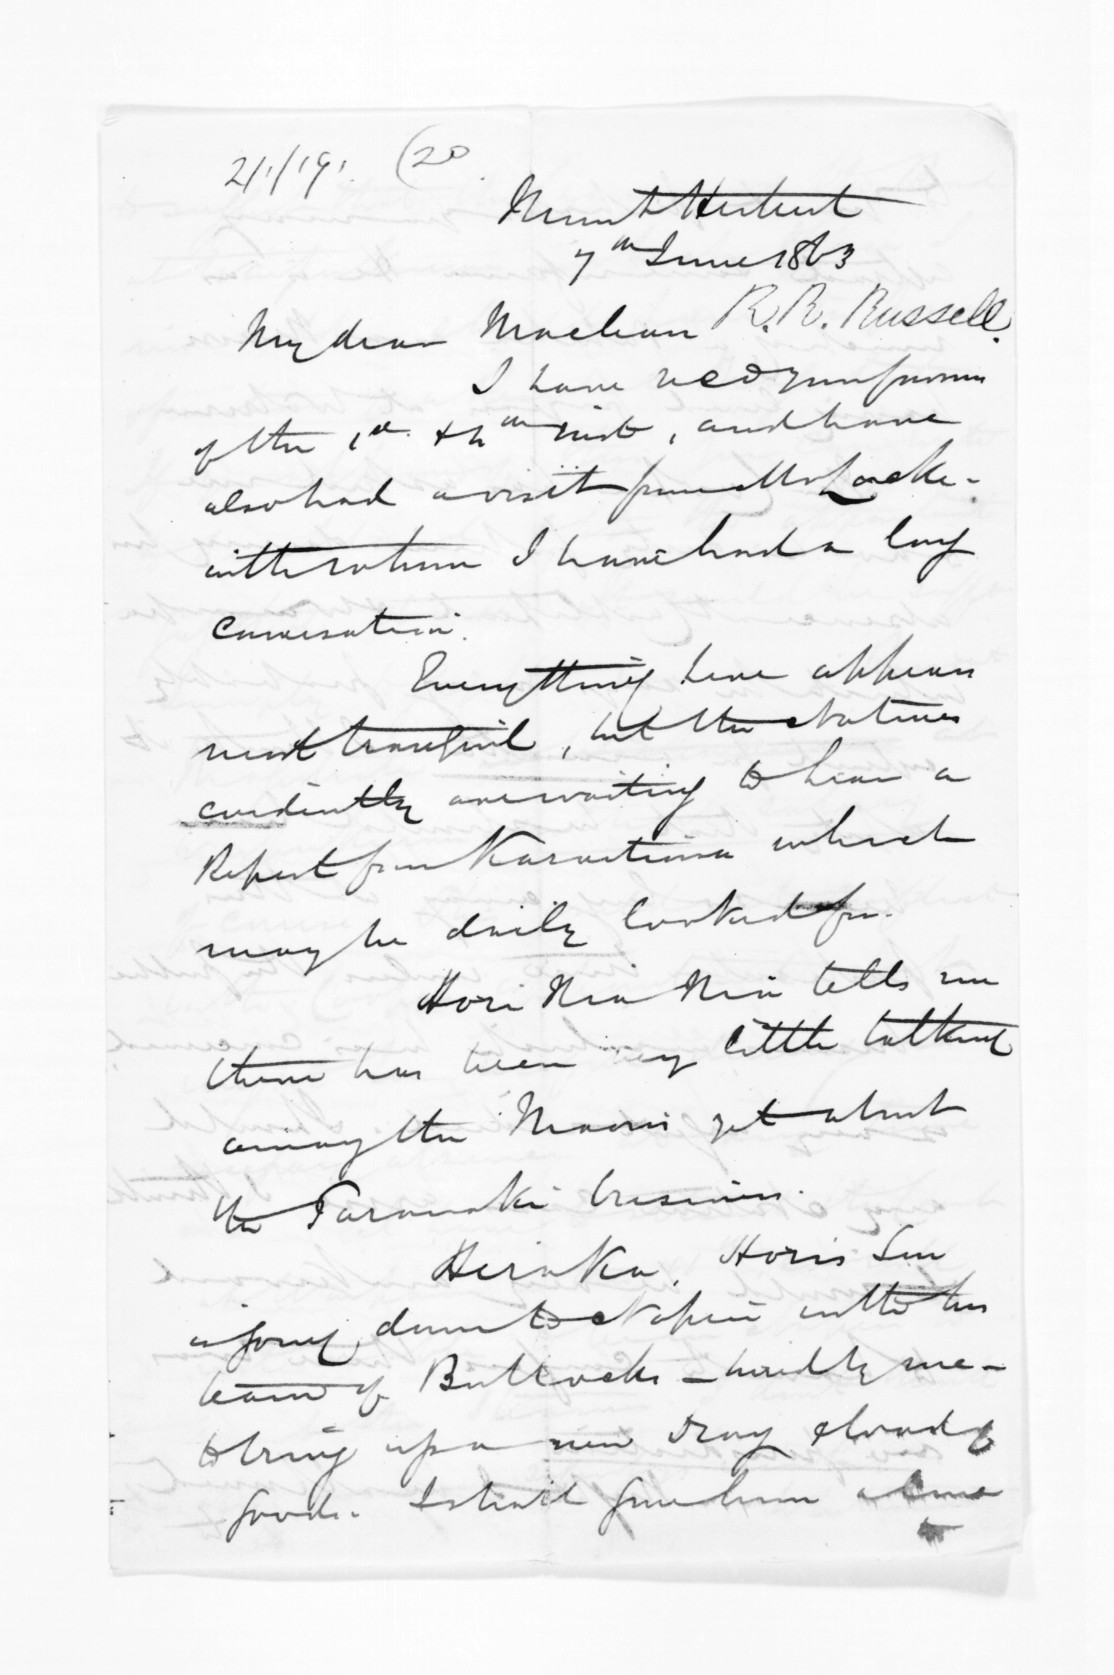 21/19. (20.
Mount Herbert
7th June 1863
My dear Maclean R. R. Russell.
I have recd yours
of the 1st & 4th inst, and have
also had a visit from Mr Locke -
with whom I have had a long
conversation.
Everything here appears
most tranquil, but the Natives
evidently are waiting to hear a
Report from Karaitiana which
may be daily looked for.
Hori Nia Nia tells me
there has been very little talking
among the Maoris yet about
the Taranaki business.
Heraka. Horis Son
is going down to Napier with his
team of Bullocks - kindly me -
to bring up a new Dray & load of
goods. I shall give him a line